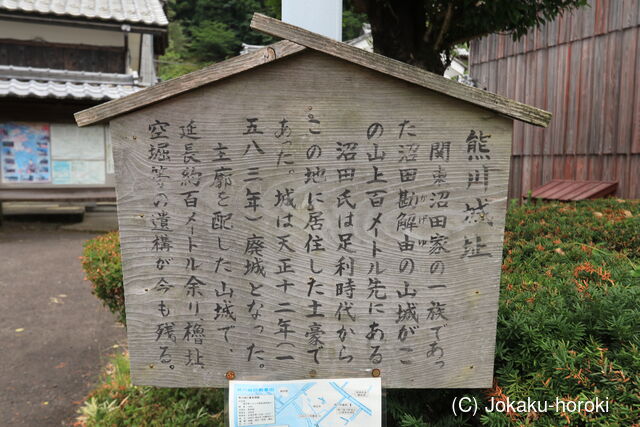 熊川城址
関東沼田家の一族であっ
た沼田勘解由の山城がこ
かげゆ
の山上百メートル先にある
沼田氏は足利時代から
この地に居住した土豪で
あった。城は天正十二年(一
五八三年)廃城となった。
主廓を配した山城で、
延長約百メートル余り櫓址、
空堀等の遺構が今も残る。
(C) Jokaku-horoki